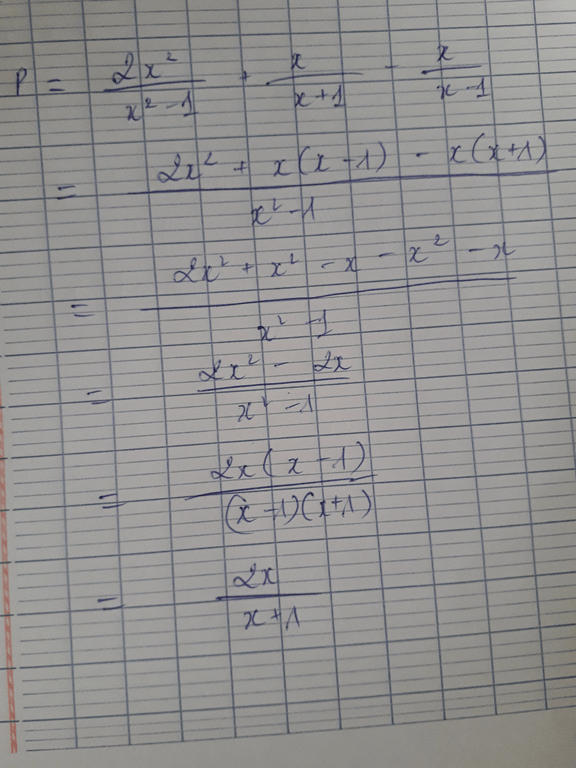 P = \frac{2x^2}{x^2-1} + \frac{x}{x+1} - \frac{x}{x-1}
= \frac{2x^2 + x(x-1) - x(x+1)}{x^2-1}
= \frac{2x^2 + x^2 - x - x^2 - x}{x^2-1}
= \frac{2x^2 - 2x}{x^2-1}
= \frac{2x(x-1)}{(x-1)(x+1)}
= \frac{2x}{x+1}